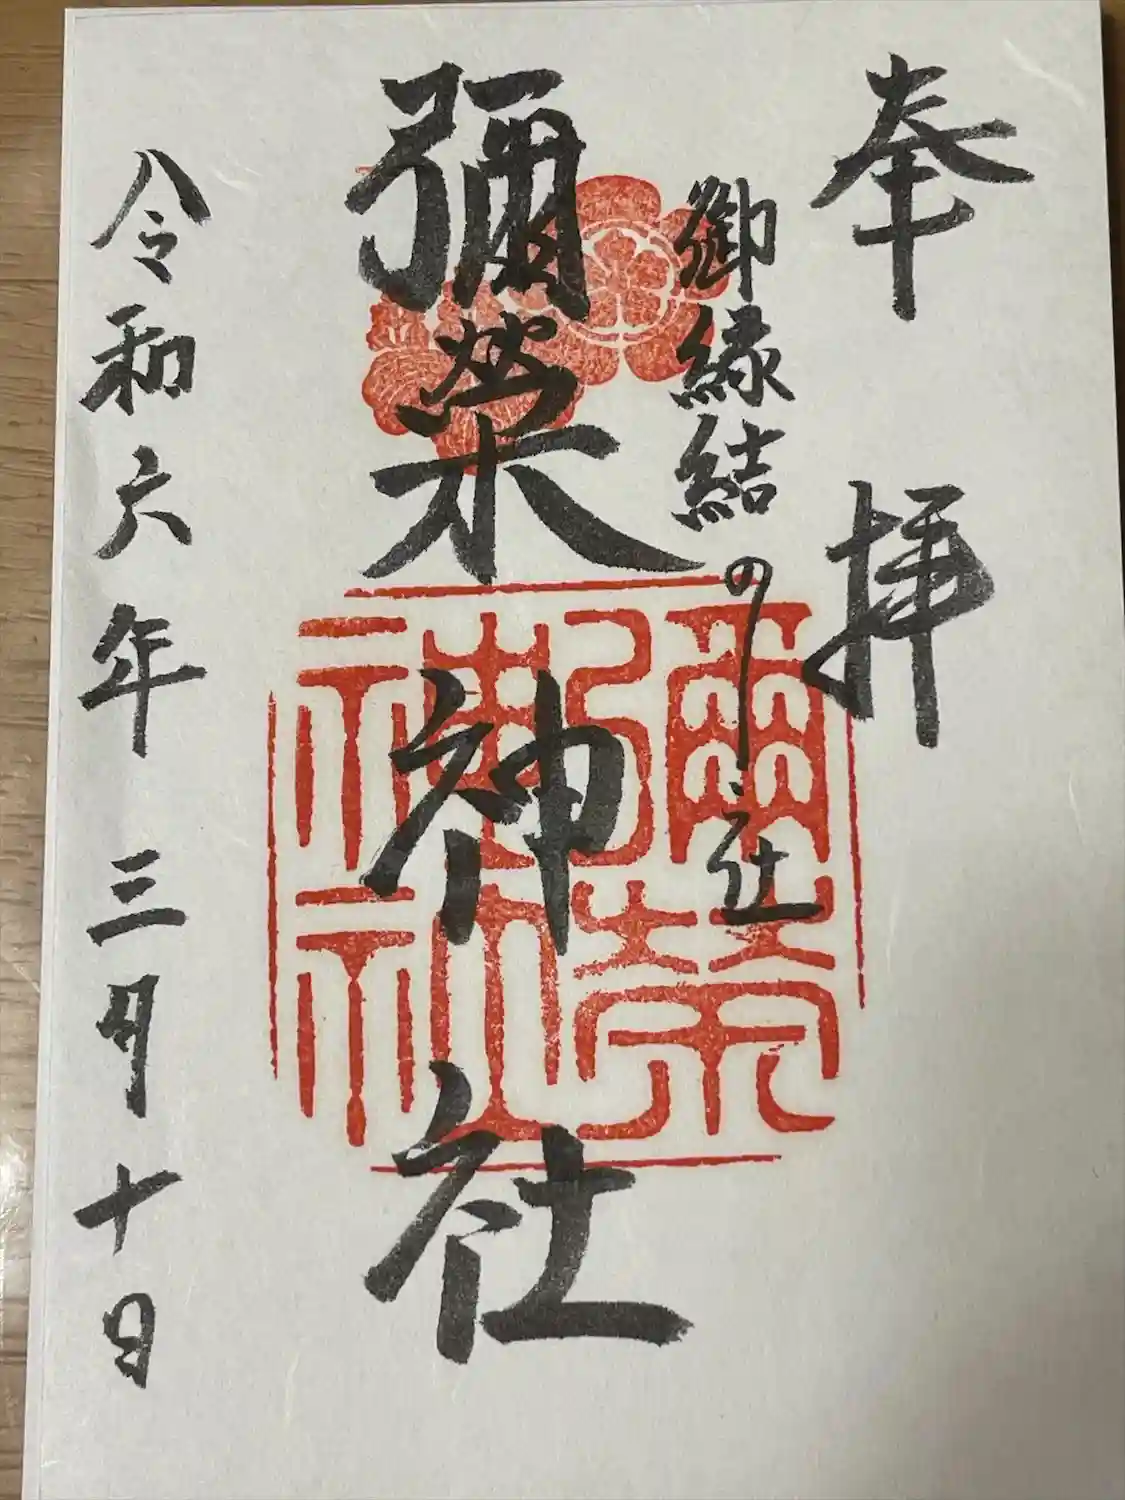 奉拝
御縁結の社
彌榮神社
令和六年三月十日
彌榮
神社